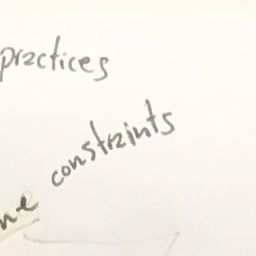 practices
constraints
ne